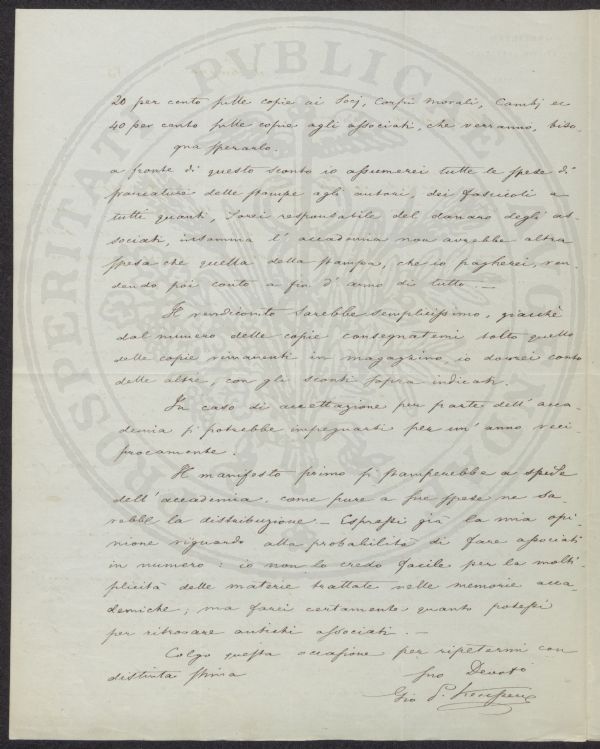 20 per cento sulle copie ai Socj, Corpi Morali, Cambj ec
40 per cento sulle copie agli associati, che verranno, biso-
gna sperarlo.
a fronte di questo sconto io assumerei tutte le spese di
francature delle stampe agli autori, dei fascicoli a
tutti quanti, sarei responsabile del danaro degli as-
sociati, insomma l'accademia non avrebbe altra
spesa che quella della stampa, che io pagherei, ren-
dendo poi conto a fin d'anno di tutto. —
Il rendiconto sarebbe semplicissimo, giacchè
dal numero delle copie consegnatemi tolto quello
delle copie rimanenti in magazzino, io dovrei conto
delle altre, con gli sconti sopra indicati.
In caso di accettazione per parte dell'acca-
demia si potrebbe impegnarsi per un'anno reci-
procamente.
Il manifesto primo si stamperebbe a spese
dell'accademia, come pure a sue spese ne sa-
rebbe la distribuzione — Espressi già la mia opi-
nione riguardo alla probabilità di fare associati
in numero: io non lo credo facile per la molti-
plicità delle materie trattate nelle memorie acca-
demiche; ma farei certamente quanto potessi
per ritrovare antichi associati. —
Colgo questa occasione per ripetermi con
distinta stima
Suo Devotº
Gio
PROSPERITATI PVBLICAE